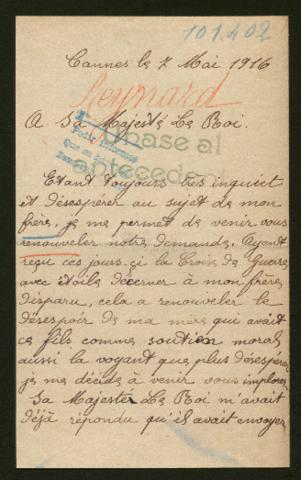 101.402
Cannes le 7 Mai 1916
Reynard
A Sa Majesté Le Roi.
Unase al
antecedente
Etant toujours très inquiet
et désespérér au sujet de mon
frère, je me permet de venir vous
renouveler notre demande. Ayant
reçu ces jours-çi la Croix de Guerre
avec étoile décerner à mon frère
disparu, cela a renouveler le
désespoir de ma mère qui avait
ce fils comme soutien moral
aussi la voyant que plus désespérér
je me décide à venir vous implorer
Sa Majester Le Roi m'avait
déjà répondu qu'il avait envoyer